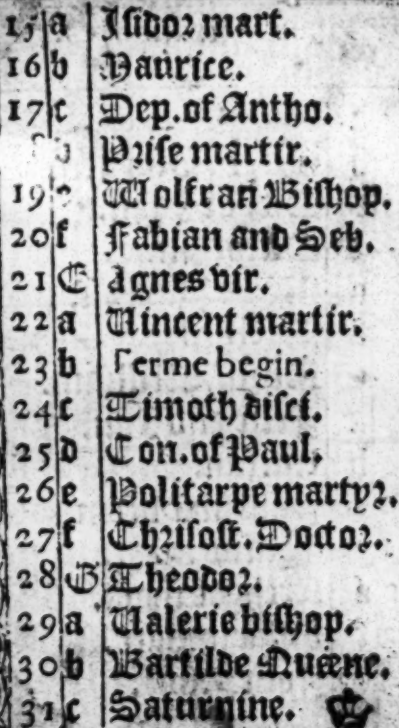 15 a Isidor mart.
16 b Maurice.
17 c Dep.of Antho.
Prise martir.
19 Wolfran Bishop.
20 f Fabian and Seb.
21 G Agnes vir.
22 a Uincent martir.
23 b Terme begin.
24 c Timoth disci.
25 d Con.of Paul.
26 e Politarpe martyr.
27 f Chrisost.Doctor.
28 G Theodor.
29 a Ualerie bishop.
30 b Bartilde Queene.
31 c Saturnine.